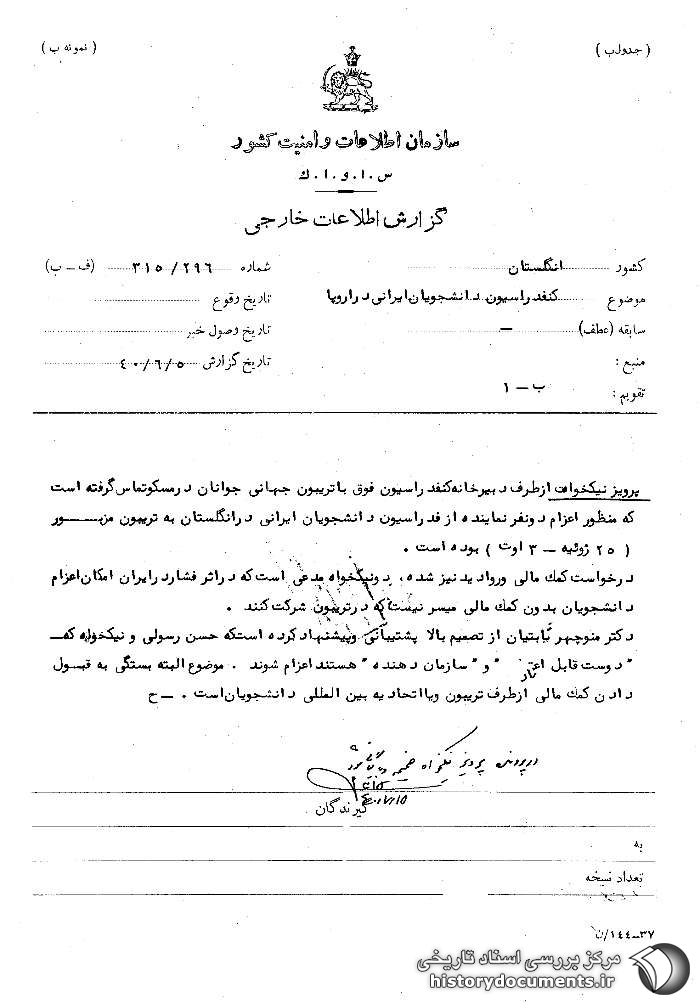 ( جدول ب )
( نمونه ب )
سازمان اطلاعات و امنیت کشور
س . ا . و . ا . ك
گزارش اطلاعات خارجی
کشور انگلستان
شماره ۳۱۵/۲۹۶ (ف - ب)
موضوع کنفدراسیون دانشجویان ایرانی در اروپا
تاریخ وقوع
سابقه (عطف) -
تاریخ وصول خبر
منبع :
تاریخ گزارش ۴۰/۶/۵
تقویم : ب - ۱
پرویز نیکخواه از طرف دبیرخانه کنفدراسیون فوق با تریبون جهانی جوانان در مسکو تماس گرفته است
که منظور اعزام دو نفر نماینده از فدراسیون دانشجویان ایرانی در انگلستان به تریبون مزبور
( ۲۵ ژوئیه - ۳ اوت ) بوده است .
درخواست کمك مالی و روادید نیز شده ، و نیکخواه مدعی است که در اثر فشار در ایران امکان اعزام
دانشجویان بدون کمك مالی میسر نیست که در تریبون شرکت کنند .
دکتر منوچهر ثابتیان از تصمیم بالا پشتیبانی و پیشنهاد کرده است که حسن رسولی و نیکخواه که
" دوست قابل اعتماد " و " سازمان دهنده " هستند اعزام شوند . موضوع البته بستگی به قبول
دادن کمك مالی از طرف تریبون و یا اتحادیه بین المللی دانشجویان است . - ح
در پرونده پرویز نیکخواه ضمیمه و بایگانی شود
گیرندگان
به
تعداد نسخه
۱۴۴-۳۷/ن
مرکز بررسی اسناد تاریخی
historydocuments.ir